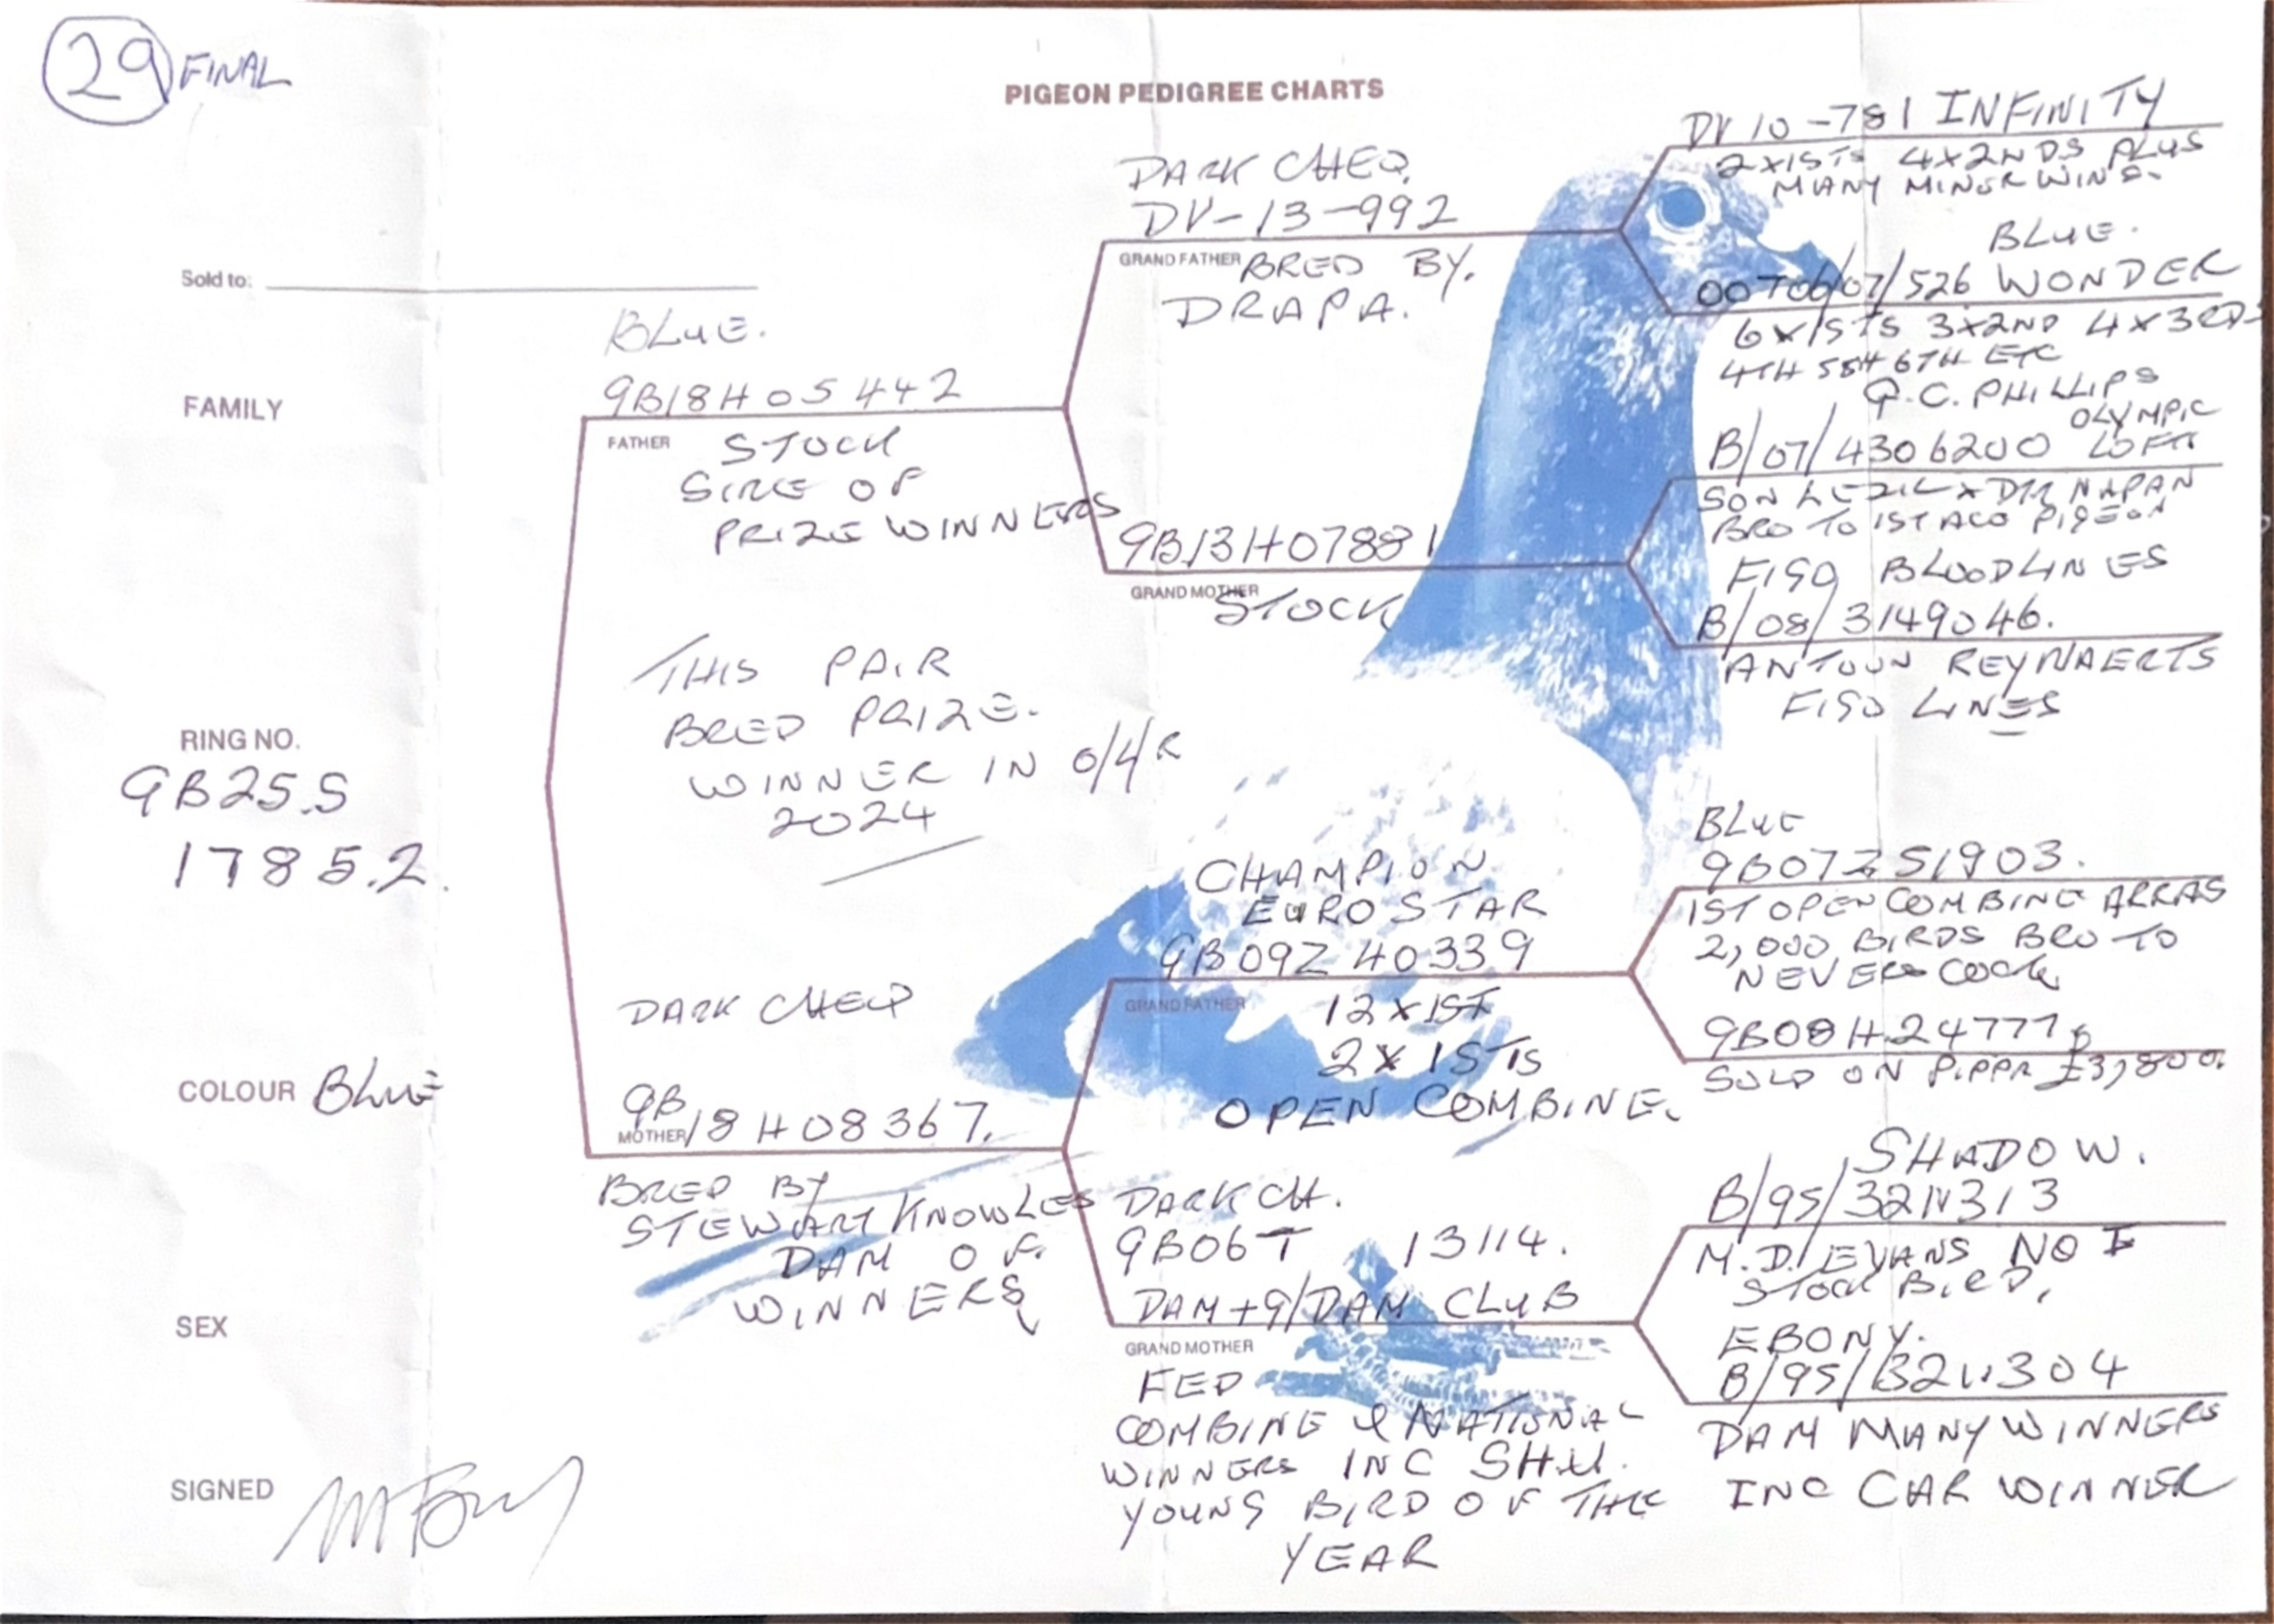 29 FINAL
PIGEON PEDIGREE CHARTS
Sold to:
FAMILY
RING NO.
GB25.S
1785.2.
COLOUR BLUE
SEX
SIGNED
BLUE.
GB18H05442
FATHER STOCK
SIRE OF
PRIZE WINNERS
THIS PAIR
BRED PRIZE.
WINNER IN O/L/R
2024
DARK CHEQ
GB
MOTHER 18H08367.
BRED BY
STEWART KNOWLES
DAM OF
WINNERS
DARK CHEQ.
DV-13-992
GRAND FATHER BRED BY.
DRAPA.
GB13H07881
GRAND MOTHER
STOCK
CHAMPION
EUROSTAR
GB09Z40339
GRAND FATHER 12X1ST
2X1STS
OPEN COMBINE.
DARK CH.
GB06T 13114.
DAM + G/DAM CLUB
GRAND MOTHER
FED
COMBINE & NATIONAL
WINNERS INC SHU.
YOUNG BIRD OF THE
YEAR
DV10-781 INFINITY
2X1STS 4X2NDS PLUS
MANY MINOR WINS.
BLUE.
526 WONDER
6X1STS 3X2ND 4X3RDS
4TH 5TH 6TH ETC
G.C. PHILLIPS
OLYMPIC
B/07/4306200 LOFTS
SON X
BRO TO 1ST ACO PIGEON
FIGO BLOODLINES
B/08/3149046.
ANTOUN REYNAERTS
FIGO LINES
BLUE
GB07Z51903.
1ST OPEN COMBINE ARRAS
2,000 BIRDS BRO TO
NEVERS COCK
GB08H24777
SOLD ON PIPPA £3,800.
SHADOW.
B/95/3211313
M.D. EVANS NO I
STOCK BIRD,
EBONY.
B/95/3211304
DAM MANY WINNERS
INC CAR WINNER